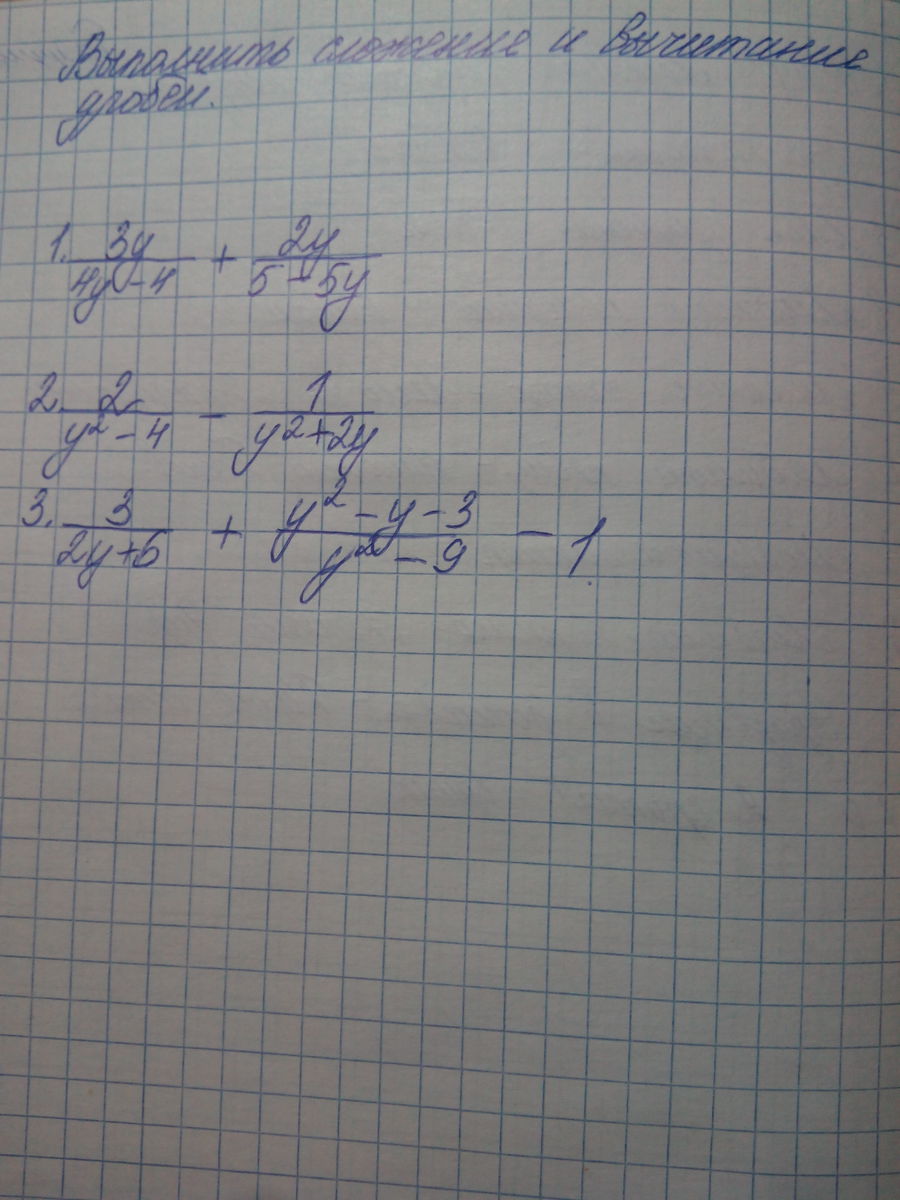 Выполнить сложение и вычитание
дробей.
1. 3y/(4y-4) + 2y/(5-5y)
2. 2/(y²-4) - 1/(y²+2y)
3. 3/(2y+6) + (y²-y-3)/(y²-9) - 1.